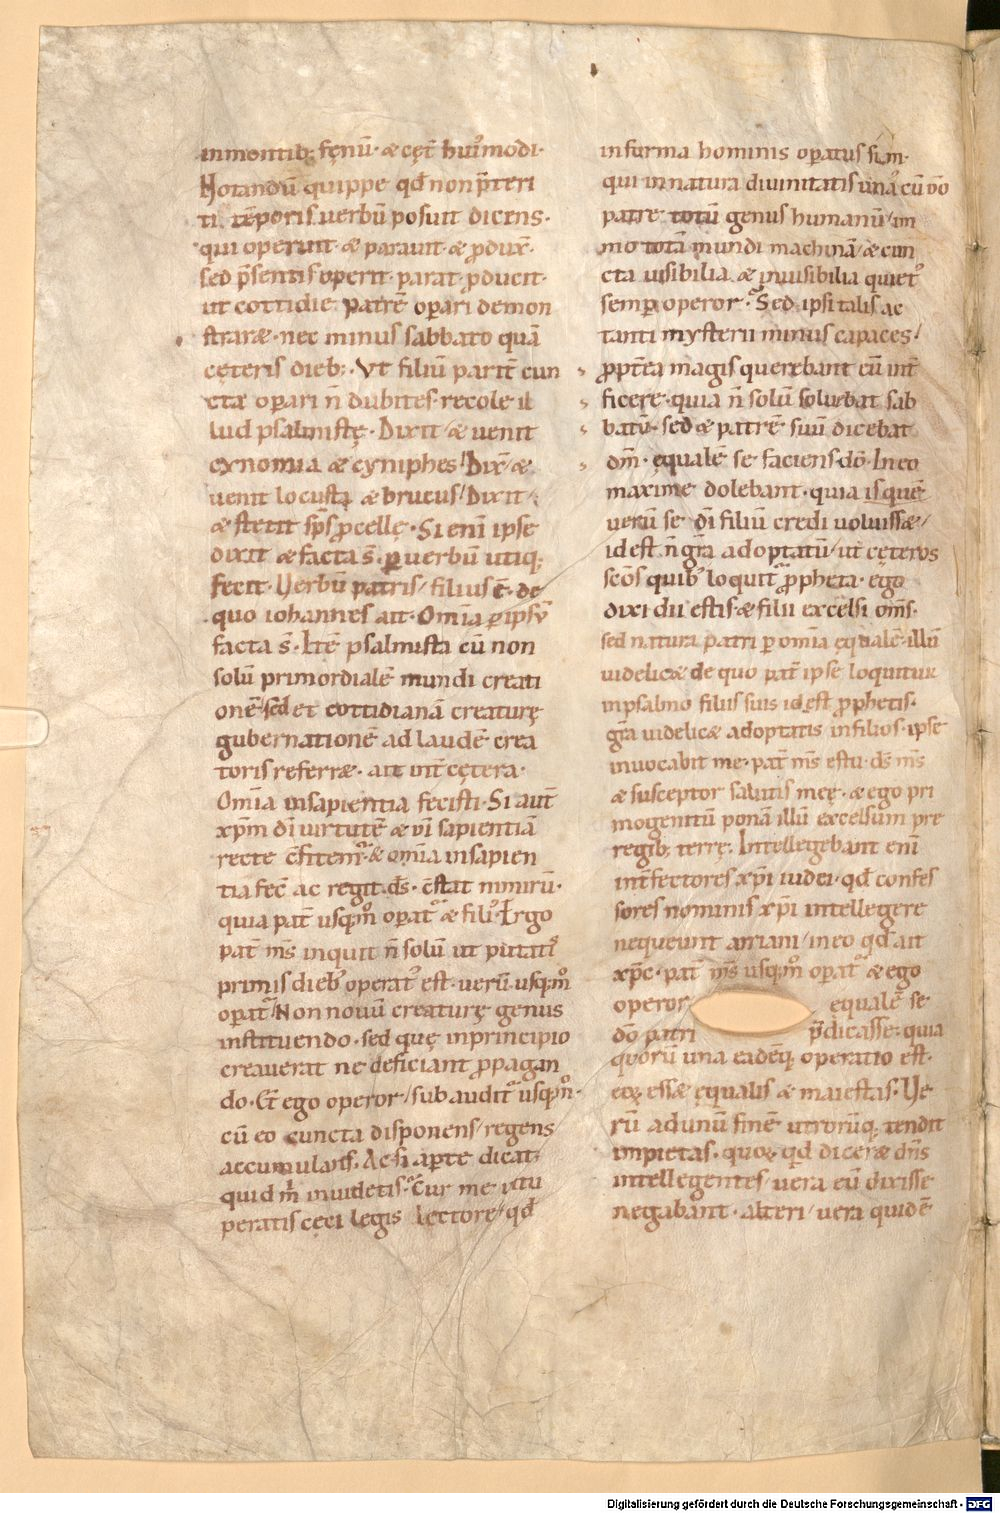 inmontib; fęnū· & cęt̄ hui᷒modi·
Notandū quippe qd̄ non p̄teri
ti tēporis uerbū posuit dicens·
qui operuit· & parauit· & ꝓdux̄·
sed p̄sentis operit· parat· ꝓducit·
ut cottidie patrē oꝑari demon
strar&· nec minus sabbato quā
cęteris dieb;· Vt filiū parit̄ cun
cta oꝑari n̄ dubites· recole il
lud psalmistę· Dixit / & uenit
cynomia & cyniphes / Dix̄ / &
uenit locusta & brucus / Dixit /
& stetit sp̄s ꝓcellę· Si enī ipse
dixit & facta s̄· ꝑ uerbū utiq;
fecit· Uerbū patris / filius ē· de
quo iohannes ait· Om̄ia ꝑ ipsū
facta s̄· Itē psalmista cū non
solū primordialē mundi creati
onē· sed et cottidianā creaturę
gubernationē ad laudē crea
toris referr&· ait int̄ cętera·
Om̄ia insapientia fecisti· Si aut̄
xp̄m dī uirtutē & dī sapientiā
recte c̄fitem̄· & om̄ia insapien
tia fec̄ ac regit ds̄· c̄stat nimirū·
quia pat̄ usq;m̊ oꝑat᷒ & fili᷒· Ergo
pat̄ ms̄ inquit n̄ solū ut putatis
primis dieb᷒ operat᷒ est· uerū usq;m̊
oꝑat᷒ / Non nouū creaturę genus
instituendo· sed quę inprincipio
creauerat ne deficiant ꝓpagan
do· Et ego operor / subaudit᷒ usq;m̊·
cū eo cuncta disponens / regens
accumulans· Ac si aꝑte dicat·
quid m̄ inuidetis· Cur me uitu
peratis cęci legis lectores / qd̄
informa hominis oꝑatus sum·
qui in natura diuinitatis una cū dō
patre totū genus humanū / im
mo totā mundi machinā / & cun
cta uisibilia & inuisibilia quiet᷒
semꝑ operor· Sed ipsi talis ac
tanti mysterii minus capaces /
ꝓpt̄ea magis querebant eū int̄
ficere· quia n̄ solū soluebat sab
batū· sed & patrē suū dicebat
dm̄· ęqualē se faciens dō· In eo
maxime dolebant· quia is quē
uerū se dī filiū credi uoluiss& /
id est n̄ gr̄a adoptatū / ut cęteros
scōs quib᷒ loquit᷒ ꝓpheta· ego
dixi dii estis & filii excelsi om̄s·
sed natura patri ꝑ om̄ia ęqualē· illū
uidelic& de quo pat̄ ipse loquitur
inpsalmo filiis suis id est ꝓphetis·
gr̄a uidelic& adoptatis infilios· ipse
inuocabit me· pat̄ ms̄ es tu· ds̄ ms̄
& susceptor salutis meę· & ego pri
mogenitū ponā illū excelsum prę
regib; terrę· Intellegebant enī
int̄fectores xp̄i iudei· qd̄ confes
sores nominis xp̄i intellegere
nequeunt arriani / in eo qd̄ ait
xp̄c· pat̄ ms̄ usq;m̊ oꝑat᷒ & ego
operor equalē se
dō patri p̄dicasse· quia
quorū una eadēq; operatio est·
eoꝝ ess& ęqualis & maiestas· Ue
rū ad unū finē utrorūq; tendit
impietas· quoꝝ qd̄ dicer& dn̄s
intellegentes / uera eū dixisse
negabant· alteri / uera quidē
Digitalisierung gefördert durch die Deutsche Forschungsgemeinschaft - DFG